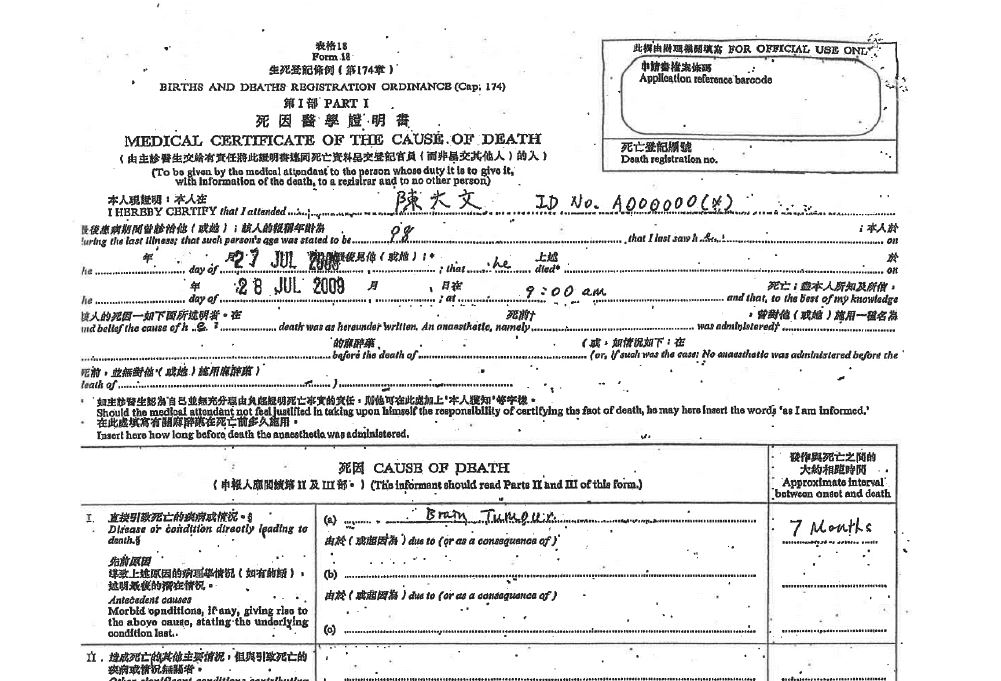 表格18
Form 18
生死登記條例(第174章)
BIRTHS AND DEATHS REGISTRATION ORDINANCE (Cap. 174)
第I部 PART I
死因醫學證明書
MEDICAL CERTIFICATE OF THE CAUSE OF DEATH
(由主診醫生交給有責任將此證明書連同死亡資料呈交登記官員(而非呈交其他人)的人)
(To be given by the medical attendant to the person whose duty it is to give it,
with information of the death, to a registrar and to no other person)
此欄由辦理機關填寫 FOR OFFICIAL USE ONLY
申請書檔案條碼
Application reference barcode
死亡登記編號
Death registration no.
本人現證明:本人在
I HEREBY CERTIFY that I attended 陳大文 ID No. A000000(*)
最後患病期間曾診治他(或她);該人的報稱年齡為 ;本人於
during the last illness; that such person's age was stated to be 98 that I last saw h on
年 月 最後見他(或她);* 上述 於
he day of 27 JUL 2009 ; that he died* on
年 月 日在 死亡;盡本人所知及所信,
he day of 28 JUL 2009 ; at 9:00 am and that, to the best of my knowledge
該人的死因一如下圖所述明者。在 死前† ,曾對他(或她)施用一種名為
nd belief the cause of h death was as hereunder written. An anaesthetic, namely was administered†
的麻醉藥 (或,如情況如下:在
before the death of (or, if such was the case: No anaesthetic was administered before the
死前,並無對他(或她)施用麻醉藥)
death of )
* 如主診醫生認為自己並無充分理由負起證明死亡事實的責任,則他可在此處加上“本人獲知”等字樣。
Should the medical attendant not feel justified in taking upon himself the responsibility of certifying the fact of death, he may here insert the words 'as I am informed.'
在此處填寫有關麻醉藥在死亡前多久施用。
Insert here how long before death the anaesthetic was administered.
死因 CAUSE OF DEATH
(申報人應閱讀第 II 及 III 部。) (The informant should read Parts II and III of this form.)
發作與死亡之間的
大約相距時間
Approximate interval
between onset and death
I. 直接引致死亡的疾病或情況。§
Disease or condition directly leading to
death.§
(a) Brain Tumour
7 Months
由於(或起因為) due to (or as a consequence of)
先前原因
導致上述原因的病理學情況(如有的話),
述明最後的潛在情況。
Antecedent causes
Morbid conditions, if any, giving rise to
the above cause, stating the underlying
condition last.
(b)
由於(或起因為) due to (or as a consequence of)
(c)
II. 造成死亡的其他主要情況,但與引致死亡的
疾病或情況無關者。
Other significant conditions contributing